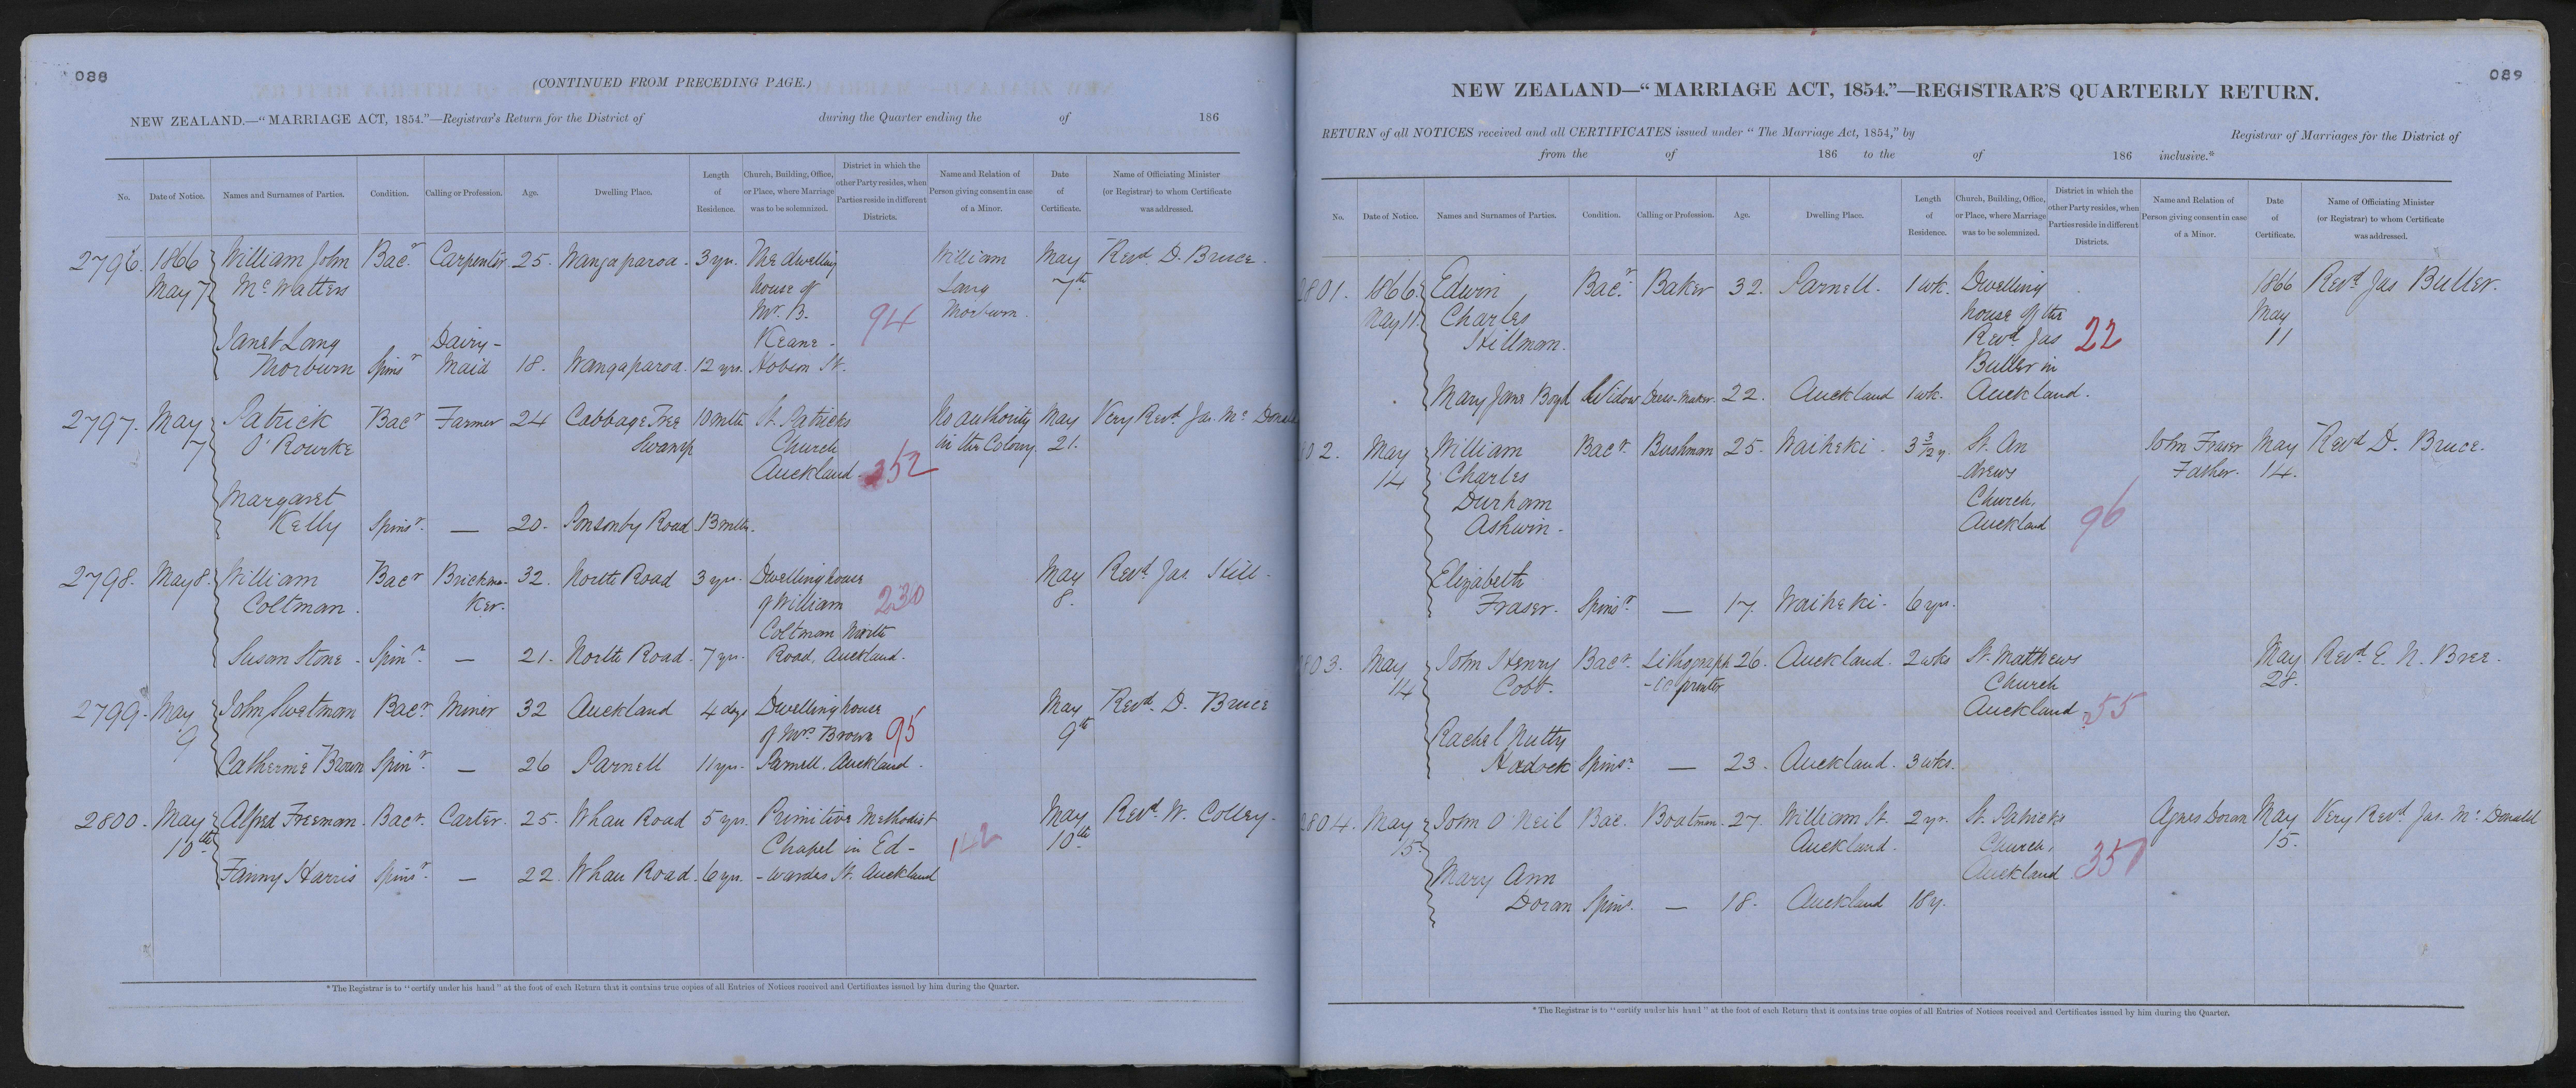 088
(CONTINUED FROM PRECEDING PAGE.)
NEW ZEALAND.—"MARRIAGE ACT, 1854."—Registrar's Return for the District of during the Quarter ending the of 186
No. Date of Notice. Names and Surnames of Parties. Condition. Calling or Profession. Age. Dwelling Place. Length of Residence. Church, Building, Office, or Place, where Marriage was to be solemnized. District in which the other Party resides, when Parties reside in different Districts. Name and Relation of Person giving consent in case of a Minor. Date of Certificate. Name of Officiating Minister (or Registrar) to whom Certificate was addressed.
2796. 1866 William John Bacr. Carpenter 25. Wangaparoa. 3 yrs. The dwelling William May Revd. D. Bruce.
May 7 McWatters house of Lang 7th
Mr. B. 94 Thorburn.
Janet Lang Dairy- Keane -
Thorburn Spinr Maid 18. Wangaparoa. 12 yrs. Hobson St.
2797. May Patrick Bacr Farmer 24 Cabbage Tree 10 mths St. Patricks No authority May Very Revd. Jas. Mc Donald
7 O'Rourke Swamp Church in the Colony 21.
Auckland. 352
Margaret
Kelly Spinsr. — 20. Ponsonby Road 13 mths.
2798. May 8. William Bacr Brickma- 32. North Road 3 yrs. Dwelling house May Revd. Jas. Hill.
Coltman. ker. of William 230 8.
Coltman North
Susan Stone - Spinr. — 21. North Road. 7 yrs. Road, Auckland.
2799. May John Swetman Bacr. Miner 32 Auckland 4 days Dwelling house May Revd. D. Bruce
9 of Mrs. Brown 95 9th
Catherine Brown Spinr. — 26 Parnell 11 yrs. Parnell. Auckland.
2800. May Alfred Freeman. Bacr. Carter. 25. Whau Road 5 yrs. Primitive Methodist May Revd. W. Colley.
10th Chapel in Ed- 142 10th
Fanny Harris Spinsr. — 22. Whau Road. 6 yrs. -wardes St. Auckland
*The Registrar is to "certify under his hand" at the foot of each Return that it contains true copies of all Entries of Notices received and Certificates issued by him during the Quarter.
089
NEW ZEALAND—"MARRIAGE ACT, 1854."—REGISTRAR'S QUARTERLY RETURN.
RETURN of all NOTICES received and all CERTIFICATES issued under "The Marriage Act, 1854," by Registrar of Marriages for the District of
from the of 186 to the of 186 inclusive.*
No. Date of Notice. Names and Surnames of Parties. Condition. Calling or Profession. Age. Dwelling Place. Length of Residence. Church, Building, Office, or Place, where Marriage was to be solemnized. District in which the other Party resides, when Parties reside in different Districts. Name and Relation of Person giving consent in case of a Minor. Date of Certificate. Name of Officiating Minister (or Registrar) to whom Certificate was addressed.
2801. 1866. Edwin Bacr. Baker 32. Parnell. 1 wk. Dwelling 1866 Revd. Jas Buller.
May 11. Charles house of the May
Hillman. Revd. Jas 22 11
Buller in
Mary Jane Boyd Widow Dress-Maker. 22. Auckland 1 wk. Auckland.
802. May William Bacr. Bushman 25. Waiheki. 3 3/12 y. St. An John Fraser May Revd D. Bruce.
14 Charles -drews Father. 14.
Durham Church,
Ashwin - Auckland 96
Elizabeth
Fraser. Spinsr. — 17. Waiheki. 6 yrs.
803. May John Henry Bacr. Lithograph 26. Auckland. 2 wks St. Matthews May Revd. E. N. Bree.
14 Cobb. -ic printer Church 28.
Auckland. 255
Rachel Nutty
Hadock Spinsr. — 23. Auckland. 3 wks.
2804. May John O'Neil Bac. Boatman. 27. William St. 2 yr. St. Patricks Agnes Doran May Very Revd. Jas. Mc Donald
15. Auckland. Church, 15.
Auckland 351
Mary Ann
Doran Spinr. — 18. Auckland 18 y.
*The Registrar is to "certify under his hand" at the foot of each Return that it contains true copies of all Entries of Notices received and Certificates issued by him during the Quarter.